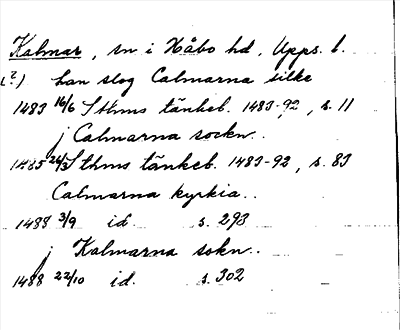 Kalmar, sn i Håbo hd, Upps. l.
(?) han slog Calmarna silke
1483 16/6 Sthms tänkeb. 1483-92, s. 11
j Calmarna sockn..
1485 26/3 Sthms tänkeb. 1483-92, s. 83
Calmarna kyrkia..
1488 3/9 id s. 293
j Kalmarna sokn..
1488 22/10 id. s. 302